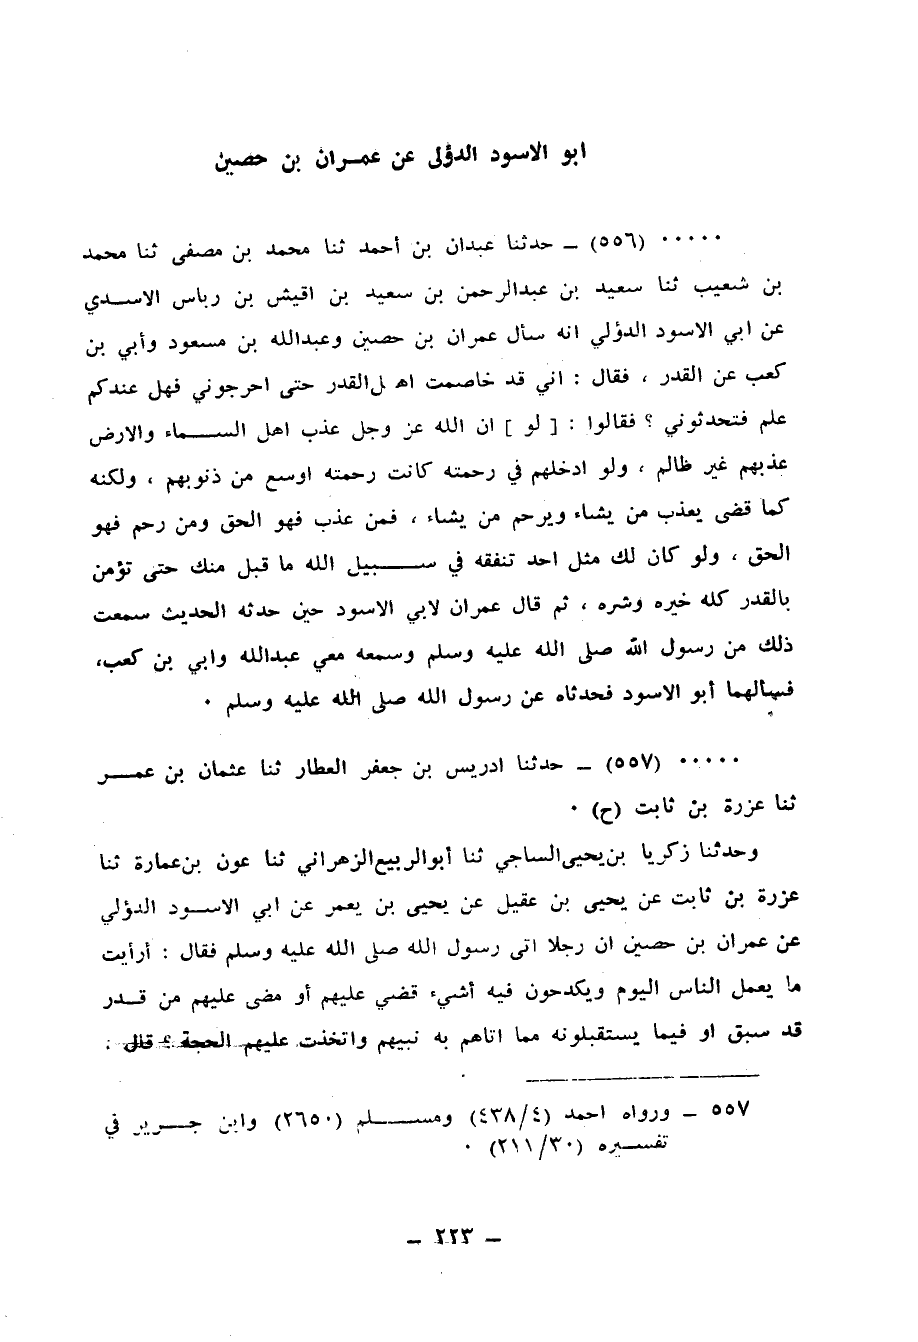 ابو الاسود الدؤلى عن عمــران بن حصين
٠٠٠٠٠ (٥٥٦) ــ حدثنا عبدان بن أحمد ثنا محمد بن مصفى ثنا محمد
بن شعيب ثنا سعيد بن عبدالرحمن بن سعيد بن اقيش بن رباس الاســدي
عن ابي الاسود الدؤلي انه سأل عمران بن حصين وعبدالله بن مسعود وأبي بن
كعب عن القدر ، فقال : اني قد خاصمت اهل القدر حتى احرجوني فهل عندكم
علم فتحدثوني ؟ فقالوا : [ لو ] ان الله عز وجل عذب اهل الســـماء والارض
عذبهم غير ظالم ، ولو ادخلهم في رحمته كانت رحمته اوسع من ذنوبهم ، ولكنه
كما قضى يعذب من يشاء ويرحم من يشاء ، فمن عذب فهو الحق ومن رحم فهو
الحق ، ولو كان لك مثل احد تنفقه في ســـبيل الله ما قبل منك حتى تؤمن
بالقدر كله خيره وشره ، ثم قال عمران لابي الاسود حين حدثه الحديث سمعت
ذلك من رسول الله صلى الله عليه وسلم وسمعه معي عبدالله وابي بن كعب،
فسألهما أبو الاسود فحدثاه عن رسول الله صلى الله عليه وسلم ٠
٠٠٠٠٠ (٥٥٧) ــ حدثنا ادريس بن جعفر العطار ثنا عثمان بن عمـــر
ثنا عزرة بن ثابت (ح) ٠
وحدثنا زكريا بن يحيى الساجي ثنا أبو الربيع الزهراني ثنا عون بن عمارة ثنا
عزرة بن ثابت عن يحيى بن عقيل عن يحيى بن يعمر عن ابي الاســود الدؤلي
عن عمران بن حصين ان رجلا اتى رسول الله صلى الله عليه وسلم فقال : أرأيت
ما يعمل الناس اليوم ويكدحون فيه أشيء قضي عليهم أو مضى عليهم من قــدر
قد سبق او فيما يستقبلونه مما اتاهم به نبيهم واتخذت عليهم الحجة ؟ قال :
٥٥٧ ــ ورواه احمد (٤٣٨/٤) ومســـلم (٢٦٥٠) وابن جـــرير في
تفســيره (٢١١/٣٠) ٠
ــ ٢٢٣ ــ